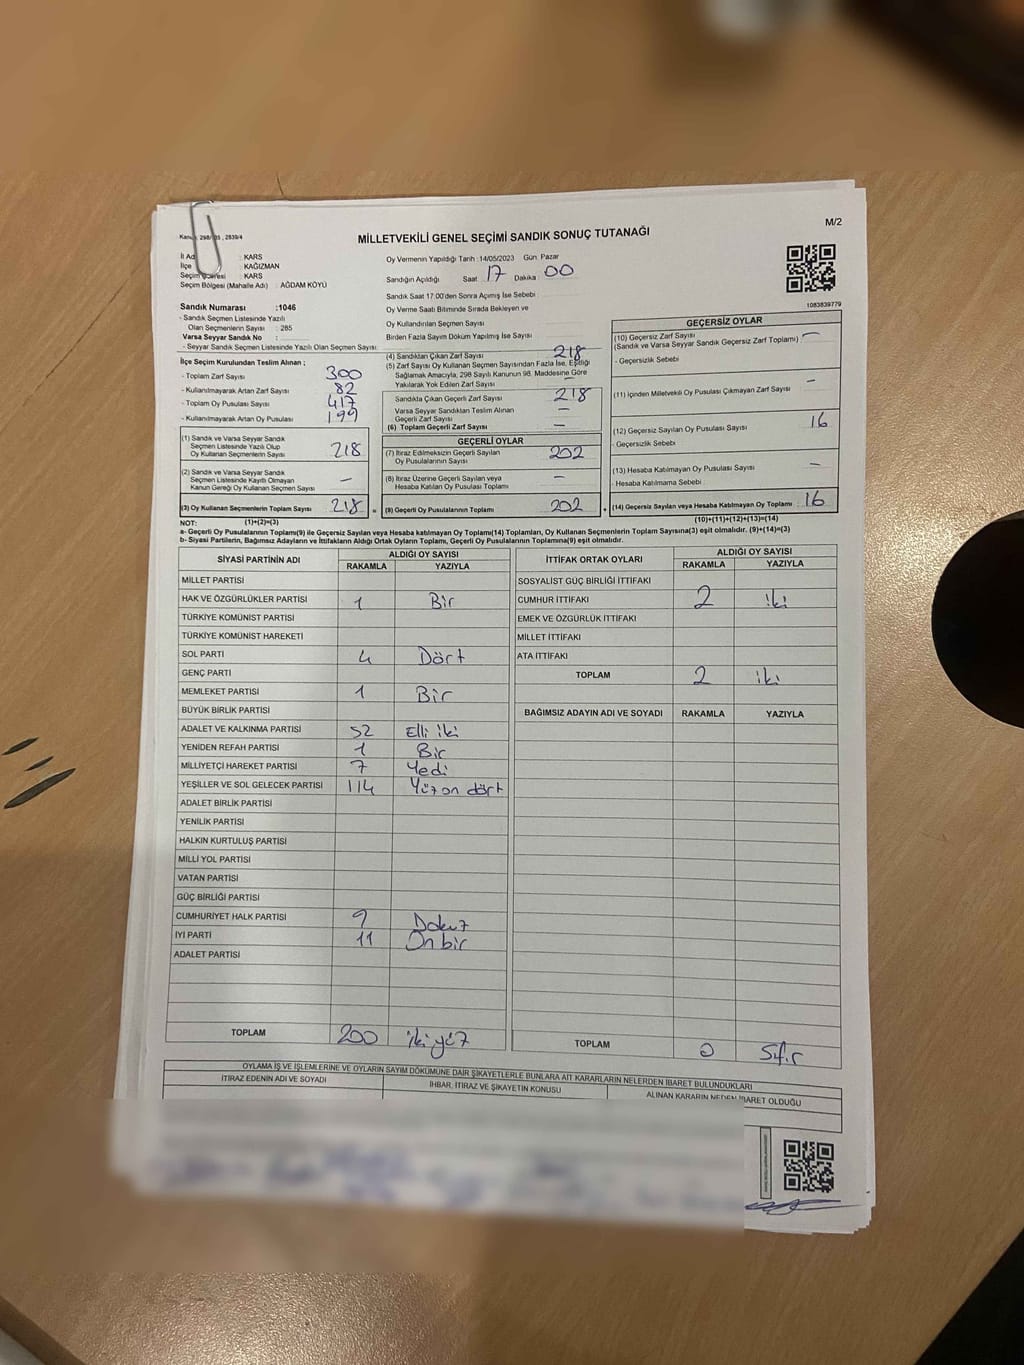 M/2
2839/4
MİLLETVEKİLİ GENEL SEÇİMİ SANDIK SONUÇ TUTANAĞI
İl Ad : KARS
İlçe : KAĞIZMAN
Seçim : KARS
Seçim Bölgesi (Mahalle Adı) : AĞDAM KÖYÜ
Oy Vermenin Yapıldığı Tarih :14/05/2023 Gün Pazar
Sandığın Açıldığı Saat 17 Dakika 00
Sandık Saat 17:00'den Sonra Açımış İse Sebebi
Oy Verme Saati Bitiminde Sırada Bekleyen ve
Oy Kullandırılan Seçmen Sayısı
Birden Fazla Sayım Döküm Yapılmış İse Sayısı
1083839779
Sandık Numarası :1046
- Sandık Seçmen Listesinde Yazılı
Olan Seçmenlerin Sayısı : 285
Varsa Seyyar Sandık No :
- Seyyar Sandık Seçmen Listesinde Yazılı Olan Seçmen Sayısı
İlçe Seçim Kurulundan Teslim Alınan ;
- Toplam Zarf Sayısı 300
- Kullanılmayarak Artan Zarf Sayısı 82
- Toplam Oy Pusulası Sayısı 417
- Kullanılmayarak Artan Oy Pusulası 199
(1) Sandık ve Varsa Seyyar Sandık
Seçmen Listesinde Yazılı Olup
Oy Kullanan Seçmenlerin Sayısı 218
(2) Sandık ve Varsa Seyyar Sandık
Seçmen Listesinde Kayıtlı Olmayan
Kanun Gereği Oy Kullanan Seçmen Sayısı —
(3) Oy Kullanan Seçmenlerin Toplam Sayısı 218 =
(1)+(2)=(3)
(4) Sandıktan Çıkan Zarf Sayısı 218
(5) Zarf Sayısı Oy Kullanan Seçmen Sayısından Fazla İse, Eşitliği
Sağlamak Amacıyla, 298 Sayılı Kanunun 98. Maddesine Göre
Yakılarak Yok Edilen Zarf Sayısı —
Sandıkta Çıkan Geçerli Zarf Sayısı 218
Varsa Seyyar Sandıktan Teslim Alınan
Geçerli Zarf Sayısı —
(6) Toplam Geçerli Zarf Sayısı —
GEÇERLİ OYLAR
(7) İtiraz Edilmeksizin Geçerli Sayılan
Oy Pusulalarının Sayısı 202
(8) İtiraz Üzerine Geçerli Sayılan veya
Hesaba Katılan Oy Pusulası Toplamı —
(9) Geçerli Oy Pusulalarının Toplamı 202 +
GEÇERSİZ OYLAR
(10) Geçersiz Zarf Sayısı
(Sandık ve Varsa Seyyar Sandık Geçersiz Zarf Toplamı) —
- Geçersizlik Sebebi
(11) İçinden Milletvekili Oy Pusulası Çıkmayan Zarf Sayısı —
(12) Geçersiz Sayılan Oy Pusulası Sayısı 16
- Geçersizlik Sebebi
(13) Hesaba Katılmayan Oy Pusulası Sayısı —
- Hesaba Katılmama Sebebi
(14) Geçersiz Sayılan veya Hesaba Katılmayan Oy Toplamı 16
(10)+(11)+(12)+(13)=(14)
NOT:
a- Geçerli Oy Pusulalarının Toplamı(9) ile Geçersiz Sayılan veya Hesaba katılmayan Oy Toplamı(14) Toplamları, Oy Kullanan Seçmenlerin Toplam Sayısına(3) eşit olmalıdır. (9)+(14)=(3)
b- Siyasi Partilerin, Bağımsız Adayların ve İttifakların Aldığı Ortak Oyların Toplamı, Geçerli Oy Pusulalarının Toplamına(9) eşit olmalıdır.
SİYASİ PARTİNİN ADI ALDIĞI OY SAYISI
RAKAMLA YAZIYLA
MİLLET PARTİSİ
HAK VE ÖZGÜRLÜKLER PARTİSİ 1 Bir
TÜRKİYE KOMÜNİST PARTİSİ
TÜRKİYE KOMÜNİST HAREKETİ
SOL PARTİ 4 Dört
GENÇ PARTİ
MEMLEKET PARTİSİ 1 Bir
BÜYÜK BİRLİK PARTİSİ
ADALET VE KALKINMA PARTİSİ 52 Elli iki
YENİDEN REFAH PARTİSİ 1 Bir
MİLLİYETÇİ HAREKET PARTİSİ 7 Yedi
YEŞİLLER VE SOL GELECEK PARTİSİ 114 Yüz on dört
ADALET BİRLİK PARTİSİ
YENİLİK PARTİSİ
HALKIN KURTULUŞ PARTİSİ
MİLLİ YOL PARTİSİ
VATAN PARTİSİ
GÜÇ BİRLİĞİ PARTİSİ
CUMHURİYET HALK PARTİSİ 9 Dokuz
İYİ PARTİ 11 On bir
ADALET PARTİSİ
TOPLAM 200 iki yüz
İTTİFAK ORTAK OYLARI ALDIĞI OY SAYISI
RAKAMLA YAZIYLA
SOSYALİST GÜÇ BİRLİĞİ İTTİFAKI
CUMHUR İTTİFAKI 2 iki
EMEK VE ÖZGÜRLÜK İTTİFAKI
MİLLET İTTİFAKI
ATA İTTİFAKI
TOPLAM 2 iki
BAĞIMSIZ ADAYIN ADI VE SOYADI RAKAMLA YAZIYLA
TOPLAM 0 Sıfır
OYLAMA İŞ VE İŞLEMLERİNE VE OYLARIN SAYIM DÖKÜMÜNE DAİR ŞİKAYETLERLE BUNLARA AİT KARARLARIN NELERDEN İBARET BULUNDUKLARI
İTİRAZ EDENİN ADI VE SOYADI İHBAR, İTİRAZ VE ŞİKAYETİN KONUSU ALINAN KARARIN NEDEN İBARET OLDUĞU